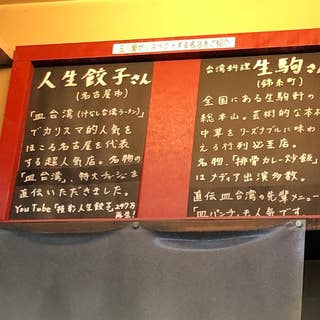 人生餃子さん
(名古屋市)
「皿台湾(汁なし台湾ラーメン)」
でカリスマ的人気を
ほこる名古屋を代表
する超人気店。名物の
「皿台湾」、特大チャーシューを
直伝いただきました。
YouTube「陸彰人生餃子」247万
再生!
台湾料理 生駒さん
(錦糸町)
全国にある生駒軒の
総本山。芸術的な本格
中華をリーズナブルに味わ
える行列必至店。
名物、「排骨カレー炒飯」
はメディア出演多数。
直伝皿台湾の先輩メニュー
「皿パンチ」も人気です